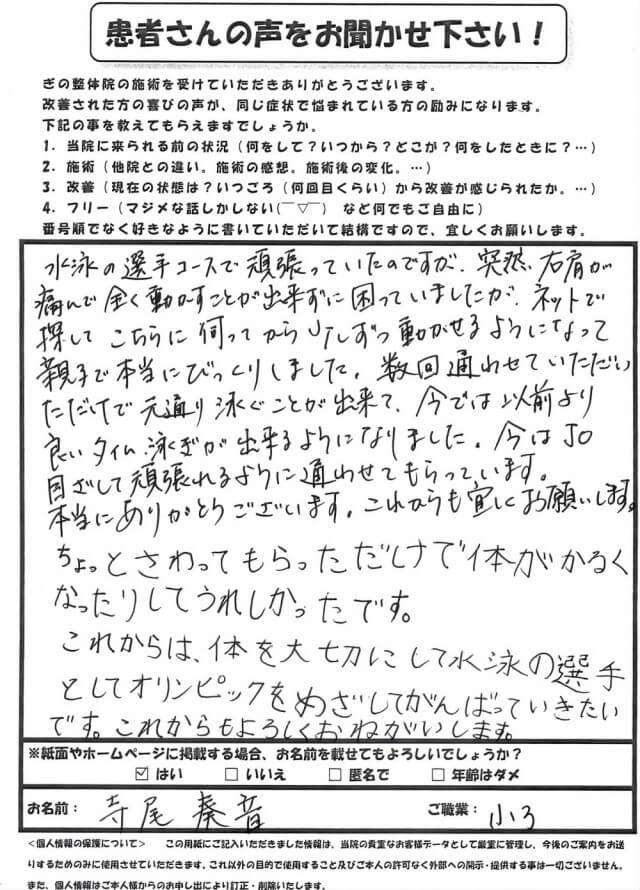 患者さんの声をお聞かせ下さい！
ぎの整体院の施術を受けていただきありがとうございます。
改善された方の喜びの声が、同じ症状で悩まれている方の励みになります。
下記の事を教えてもらえますでしょうか。
1．当院に来られる前の状況（何をして？いつから？どこが？何をしたときに？…）
2．施術（他院との違い。施術の感想。施術後の変化。…）
3．改善（現在の状態は？いつごろ（何回目くらい）から改善が感じられたか。…）
4．フリー（マジメな話しかしない(￣▽￣)　など何でもご自由に）
番号順でなく好きなように書いていただいて結構ですので、宜しくお願いします。
水泳の選手コースで頑張っていたのですが、突然、右肩が
痛んで全く動かすことが出来ずに困っていましたが、ネットで
探してこちらに伺ってから少しずつ動かせるようになって
親子で本当にびっくりしました。数回通わせていただい
ただけで元通り泳ぐことが出来て、今では以前より
良いタイム泳ぎが出来るようになりました。今はJO
目ざして頑張れるように通わせてもらっています。
本当にありがとうございます。これからも宜しくお願いします。
ちょっとさわってもらっただけで体がかるく
なったりしてうれしかったです。
これからは、体を大切にして水泳の選手
としてオリンピックをめざしてがんばっていきたい
です。これからもよろしくおねがいします。
※紙面やホームページに掲載する場合、お名前を載せてもよろしいでしょうか？
☑ はい　□ いいえ　□ 匿名で　□ 年齢はダメ
お名前：寺尾 奏音　ご職業：小3
＜個人情報の保護について＞　この用紙にご記入いただきました情報は、当院の貴重なお客様データとして厳重に管理し、今後のご案内をお送
りするためのみに使用させていただきます。これ以外の目的で使用すること及びご本人の許可なく外部への開示・提供する事は一切ございません。
また、個人情報はご本人様からのお申し出により訂正・削除いたします。